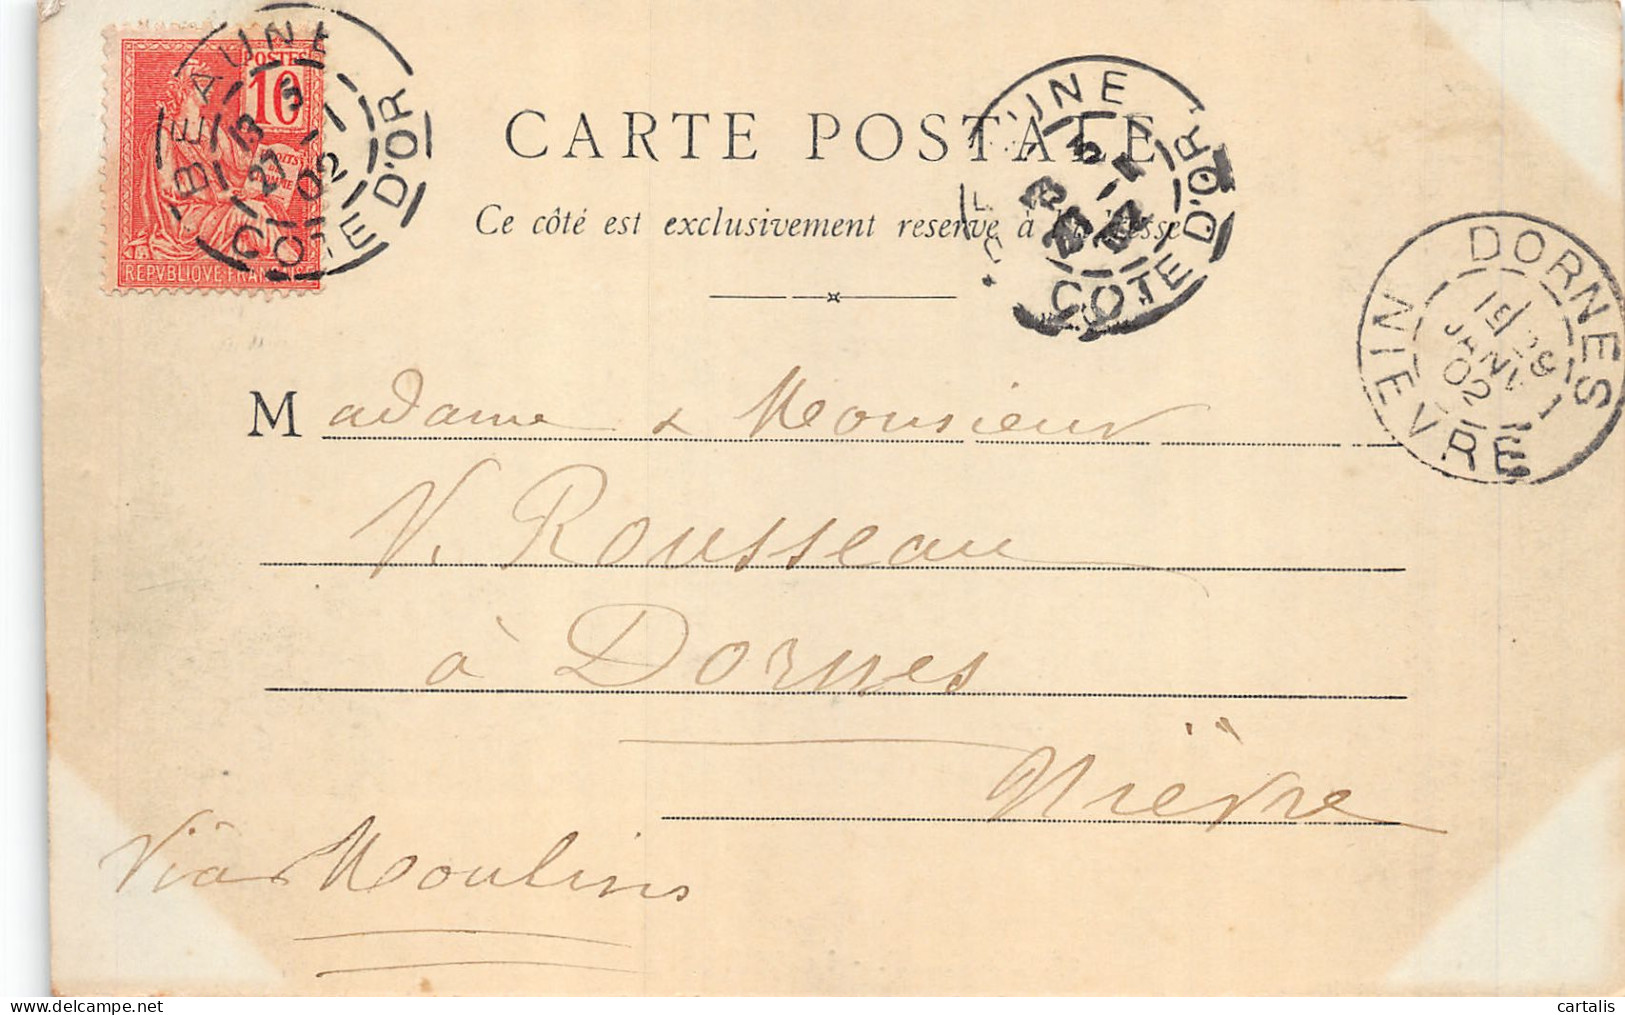 POSTES
10
REPVBLIQVE FRANÇAISE
BEAUNE
13 5
27 -1
02
COTE D'OR
CARTE POSTALE
Ce côté est exclusivement reservé à l'adresse
COTE D'OR
DORNES
JANV
02
NIEVRE
Madame & Monsieur
V. Rousseau
à Dornes
Nièvre
Via Moulins
cartalis